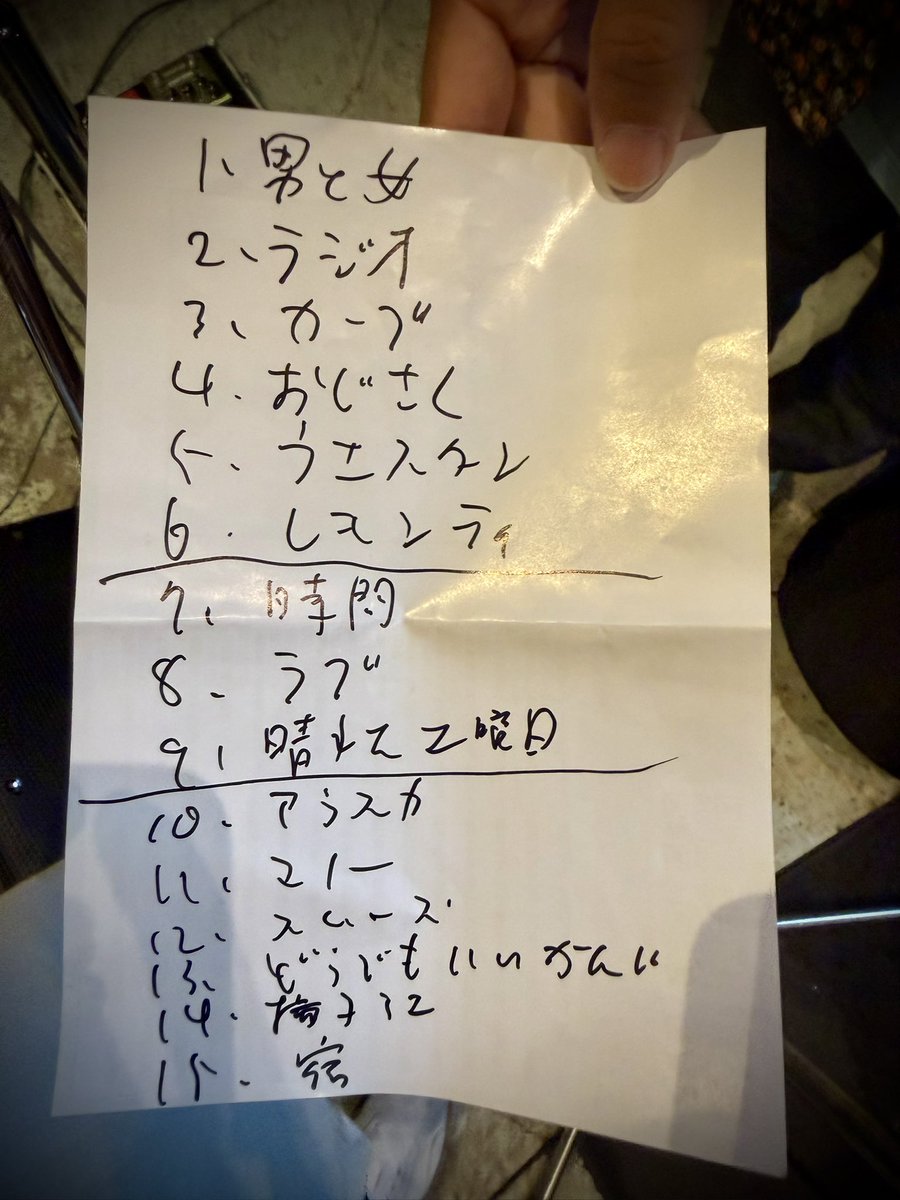 1、男と女
2、ラジオ
3、カーブ
4、おじさん
5、ウエスタン
6、レモンティ
7、時間
8、ラブ
9、晴れて曜日
10、アラスカ
11、マリー
12、スムーズ
13、どうでもいいかんじ
14、
15、宿